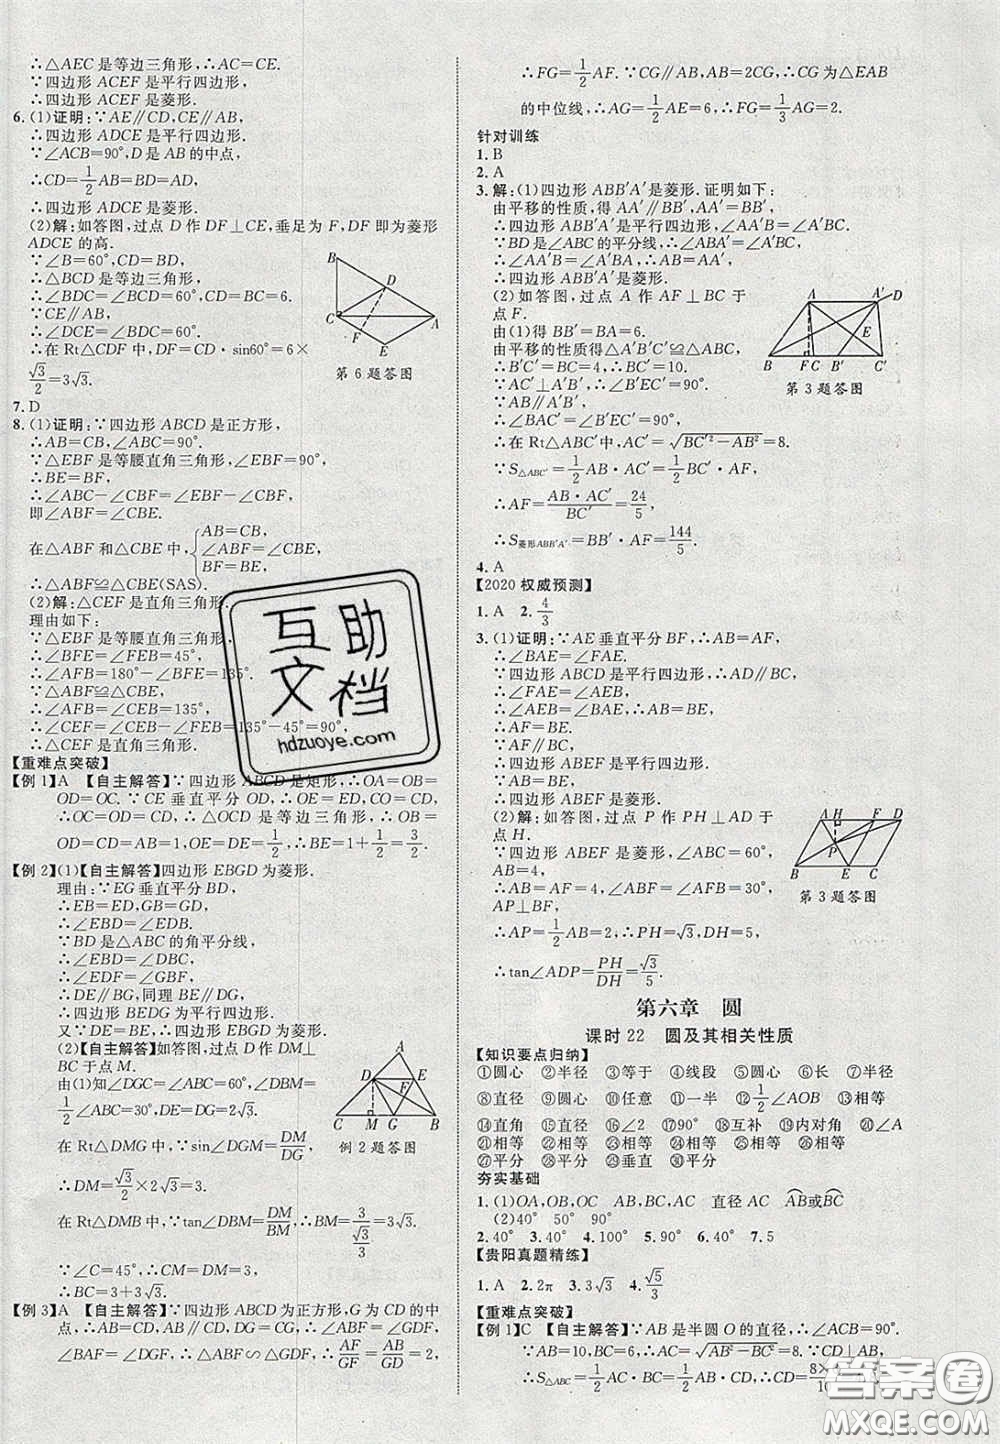 ∴△AEC 是等边三角形,∴AC=CE.
∴四边形 ACEF 是平行四边形,
∴四边形 ACEF 是菱形.
6.(1)证明:∵AE∥CD,CE∥AB,
∴四边形 ADCE 是平行四边形.
∵∠ACB=90°,D 是 AB 的中点,
∴CD=1/2AB=BD=AD,
∴四边形 ADCE 是菱形.
(2)解:如答图,过点 D 作 DF⊥CE,垂足为 F,DF 即为菱形
ADCE 的高.
∵∠B=60°,CD=BD,
∴△BCD 是等边三角形,
∴∠BDC=∠BCD=60°,CD=BC=6.
∵CE∥AB,
∴∠DCE=∠BDC=60°.
∴在 Rt△CDF 中,DF=CD·sin60°=6×
√3/2=3√3.
B
D
C
A
F
E
第 6 题答图
7.D
8.(1)证明:∵四边形 ABCD 是正方形,
∴AB=CB,∠ABC=90°.
∵△EBF 是等腰直角三角形,∠EBF=90°,
∴BE=BF,
∴∠ABC-∠CBF=∠EBF-∠CBF,
即∠ABF=∠CBE.
在△ABF 和△CBE 中,{AB=CB,
∠ABF=∠CBE,
BF=BE,
∴△ABF≌△CBE(SAS).
(2)解:△CEF 是直角三角形.
理由如下:
∵△EBF 是等腰直角三角形,
∴∠BFE=∠FEB=45°,
∴∠AFB=180°-∠BFE=135°.
∵△ABF≌△CBE,
∴∠CEB=∠AFB=135°,
∴∠CEF=∠CEB-∠FEB=135°-45°=90°,
∴△CEF 是直角三角形.
【重难点突破】
【例 1】A 【自主解答】∵四边形 ABCD 是矩形,∴OA=OB=
OD=OC.∵CE 垂直平分 OD,∴OE=ED,CO=CD,
∴OC=OD=CD,∴△OCD 是等边三角形,∴OB=
OD=CD=AB=1,∴OE=DE=1/2,∴BE=1+1/2=3/2.
【例 2】(1)【自主解答】四边形 EBGD 为菱形.
理由:∵EG 垂直平分 BD,
∴EB=ED,GB=GD,
∴∠EBD=∠EDB.
∵BD 是△ABC 的角平分线,
∴∠EBD=∠DBC,
∴∠EDF=∠GBF,
∴DE∥BG,同理 BE∥DG,
∴四边形 BEDG 为平行四边形.
又∵DE=BE,∴四边形 EBGD 为菱形.
(2)【自主解答】如答图,过点 D 作 DM⊥
BC 于点 M.
由(1)知∠DGC=∠ABC=30°,∠DBM=
1/2∠ABC=15°,DE=DG=2√3.
在 Rt△DMG 中,∵sin∠DGM=DM/DG,
∴DM=√3/2×2√3=3.
在 Rt△DMB 中,∵tan∠DBM=DM/BM,∴BM=3/(√3/3)=3√3.
∵∠C=45°,∴CM=DM=3,
∴BC=3+3√3.
A
D
E
F
C
M
G
B
例 2 题答图
【例 3】A 【自主解答】∵四边形 ABCD 为正方形,G 为 CD 的中
点,∴AB=CD,AB∥CD,∴∠ABF=∠GDF,
∠BAF=∠DGF,∴△ABF∽△GDF,∴AF/GF=AB/GD=2,
∴FG=1/2AF.∵CG∥AB,AB=2CG,∴CG 为△EAB
的中位线,∴AG=1/2AE=6,∴FG=1/3AG=2.
针对训练
1.B
2.A
3.解:(1)四边形 ABB′A′是菱形.证明如下:
由平移的性质,得 AA′∥BB′,AA′=BB′,
∴四边形 ABB′A′是平行四边形,∠AA′B=∠A′BC.
∵BD 是∠ABC 的平分线,∴∠ABA′=∠A′BC,
∴∠AA′B=∠A′BA,∴AB=AA′,
∴四边形 ABB′A′是菱形.
(2)如答图,过点 A 作 AF⊥BC 于
点 F.
由(1)得 BB′=BA=6.
由平移的性质得△A′B′C′≌△ABC,
∴B′C′=BC=4,∴BC′=10.
∵AC′⊥A′B′,∴∠B′EC′=90°.
∵AB∥A′B′,
∴∠BAC′=∠B′EC′=90°.
∴在 Rt△ABC′中,AC′=√(BC′²-AB²)=8.
∵S△ABC′=1/2AB·AC′=1/2BC′·AF,
∴AF=AB·AC′/BC′=24/5,
∴S菱形ABB′A′=BB′·AF=144/5.
A
A′
D
E
B
F
C
B′
C′
第 3 题答图
4.A
【2020 权威预测】
1.A 2.4/3
3.(1)证明:∵AE 垂直平分 BF,∴AB=AF,
∴∠BAE=∠FAE.
∵四边形 ABCD 是平行四边形,∴AD∥BC,
∴∠FAE=∠AEB,∴∠AEB=∠BAE,
∴AB=BE,
∴AF=BE.
∵AF∥BE,
∴四边形 ABEF 是平行四边形.
∵AB=BE,
∴四边形 ABEF 是菱形.
(2)解:如答图,过点 P 作 PH⊥AD 于
点 H.
∵四边形 ABEF 是菱形,∠ABC=60°,
∴AB=AF=4,∠ABF=∠AFB=30°,
AP⊥BF,
∴AP=1/2AB=2,∴PH=√3,DH=5,
∴tan∠ADP=PH/DH=√3/5.
A
H
F
D
P
B
E
C
第 3 题答图
第六章 圆
课时 22 圆及其相关性质
【知识要点归纳】
①圆心 ②半径 ③等于 ④线段 ⑤圆心 ⑥长 ⑦半径
⑧直径 ⑨圆心 ⑩任意 ⑪一半 ⑫1/2∠AOB ⑬相等
⑭直角 ⑮直径 ⑯2 ⑰90° ⑱互补 ⑲内对角 ⑳∠A
㉑相等 ㉒平分 ㉓相等 ㉔相等 ㉕相等 ㉖相等
㉗平分 ㉘平分 ㉙垂直 ㉚平分
夯实基础
1.(1)OA,OB,OC AB,BC,AC 直径 AC AB或BC
(2)40° 50° 90°
2.40° 3.40° 4.100° 5.90° 6.40° 7.5
【贵阳真题精练】
1.A 2.2π 3.3√3 4.√5/3
【重难点突破】
【例 1】C 【自主解答】∵AB 是半圆 O 的直径,∴∠ACB=90°.
∵AB=10,BC=6,∴AC=√(AB²-BC²)=8.∵CD⊥AB,
∴S△ABC=1/2AC·BC=1/2AB·CD,∴CD=
互助
文档
hdzuoye.com
答案圈
MXQE.COM